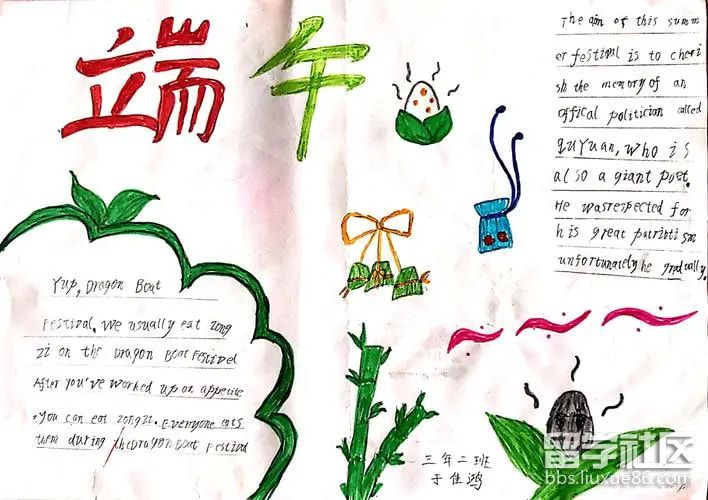 端午
The aim of this summ
er festival is to cheri
sh the memory of an
offical politician called
quYuan, who is
also a giant poet.
He wasrespected for
his great puriotism
unfortunately he gradually.
Yup, Dragon Boat
Festival, We usually eat zong
zi on the Dragon Boat Festivel
After you've worked up on appetite
.You can eat zongzi. Everyone eats
them during theDragon Boat Festival
三年二班
于佳鸿
留学社区
bbs.liuxue86.com